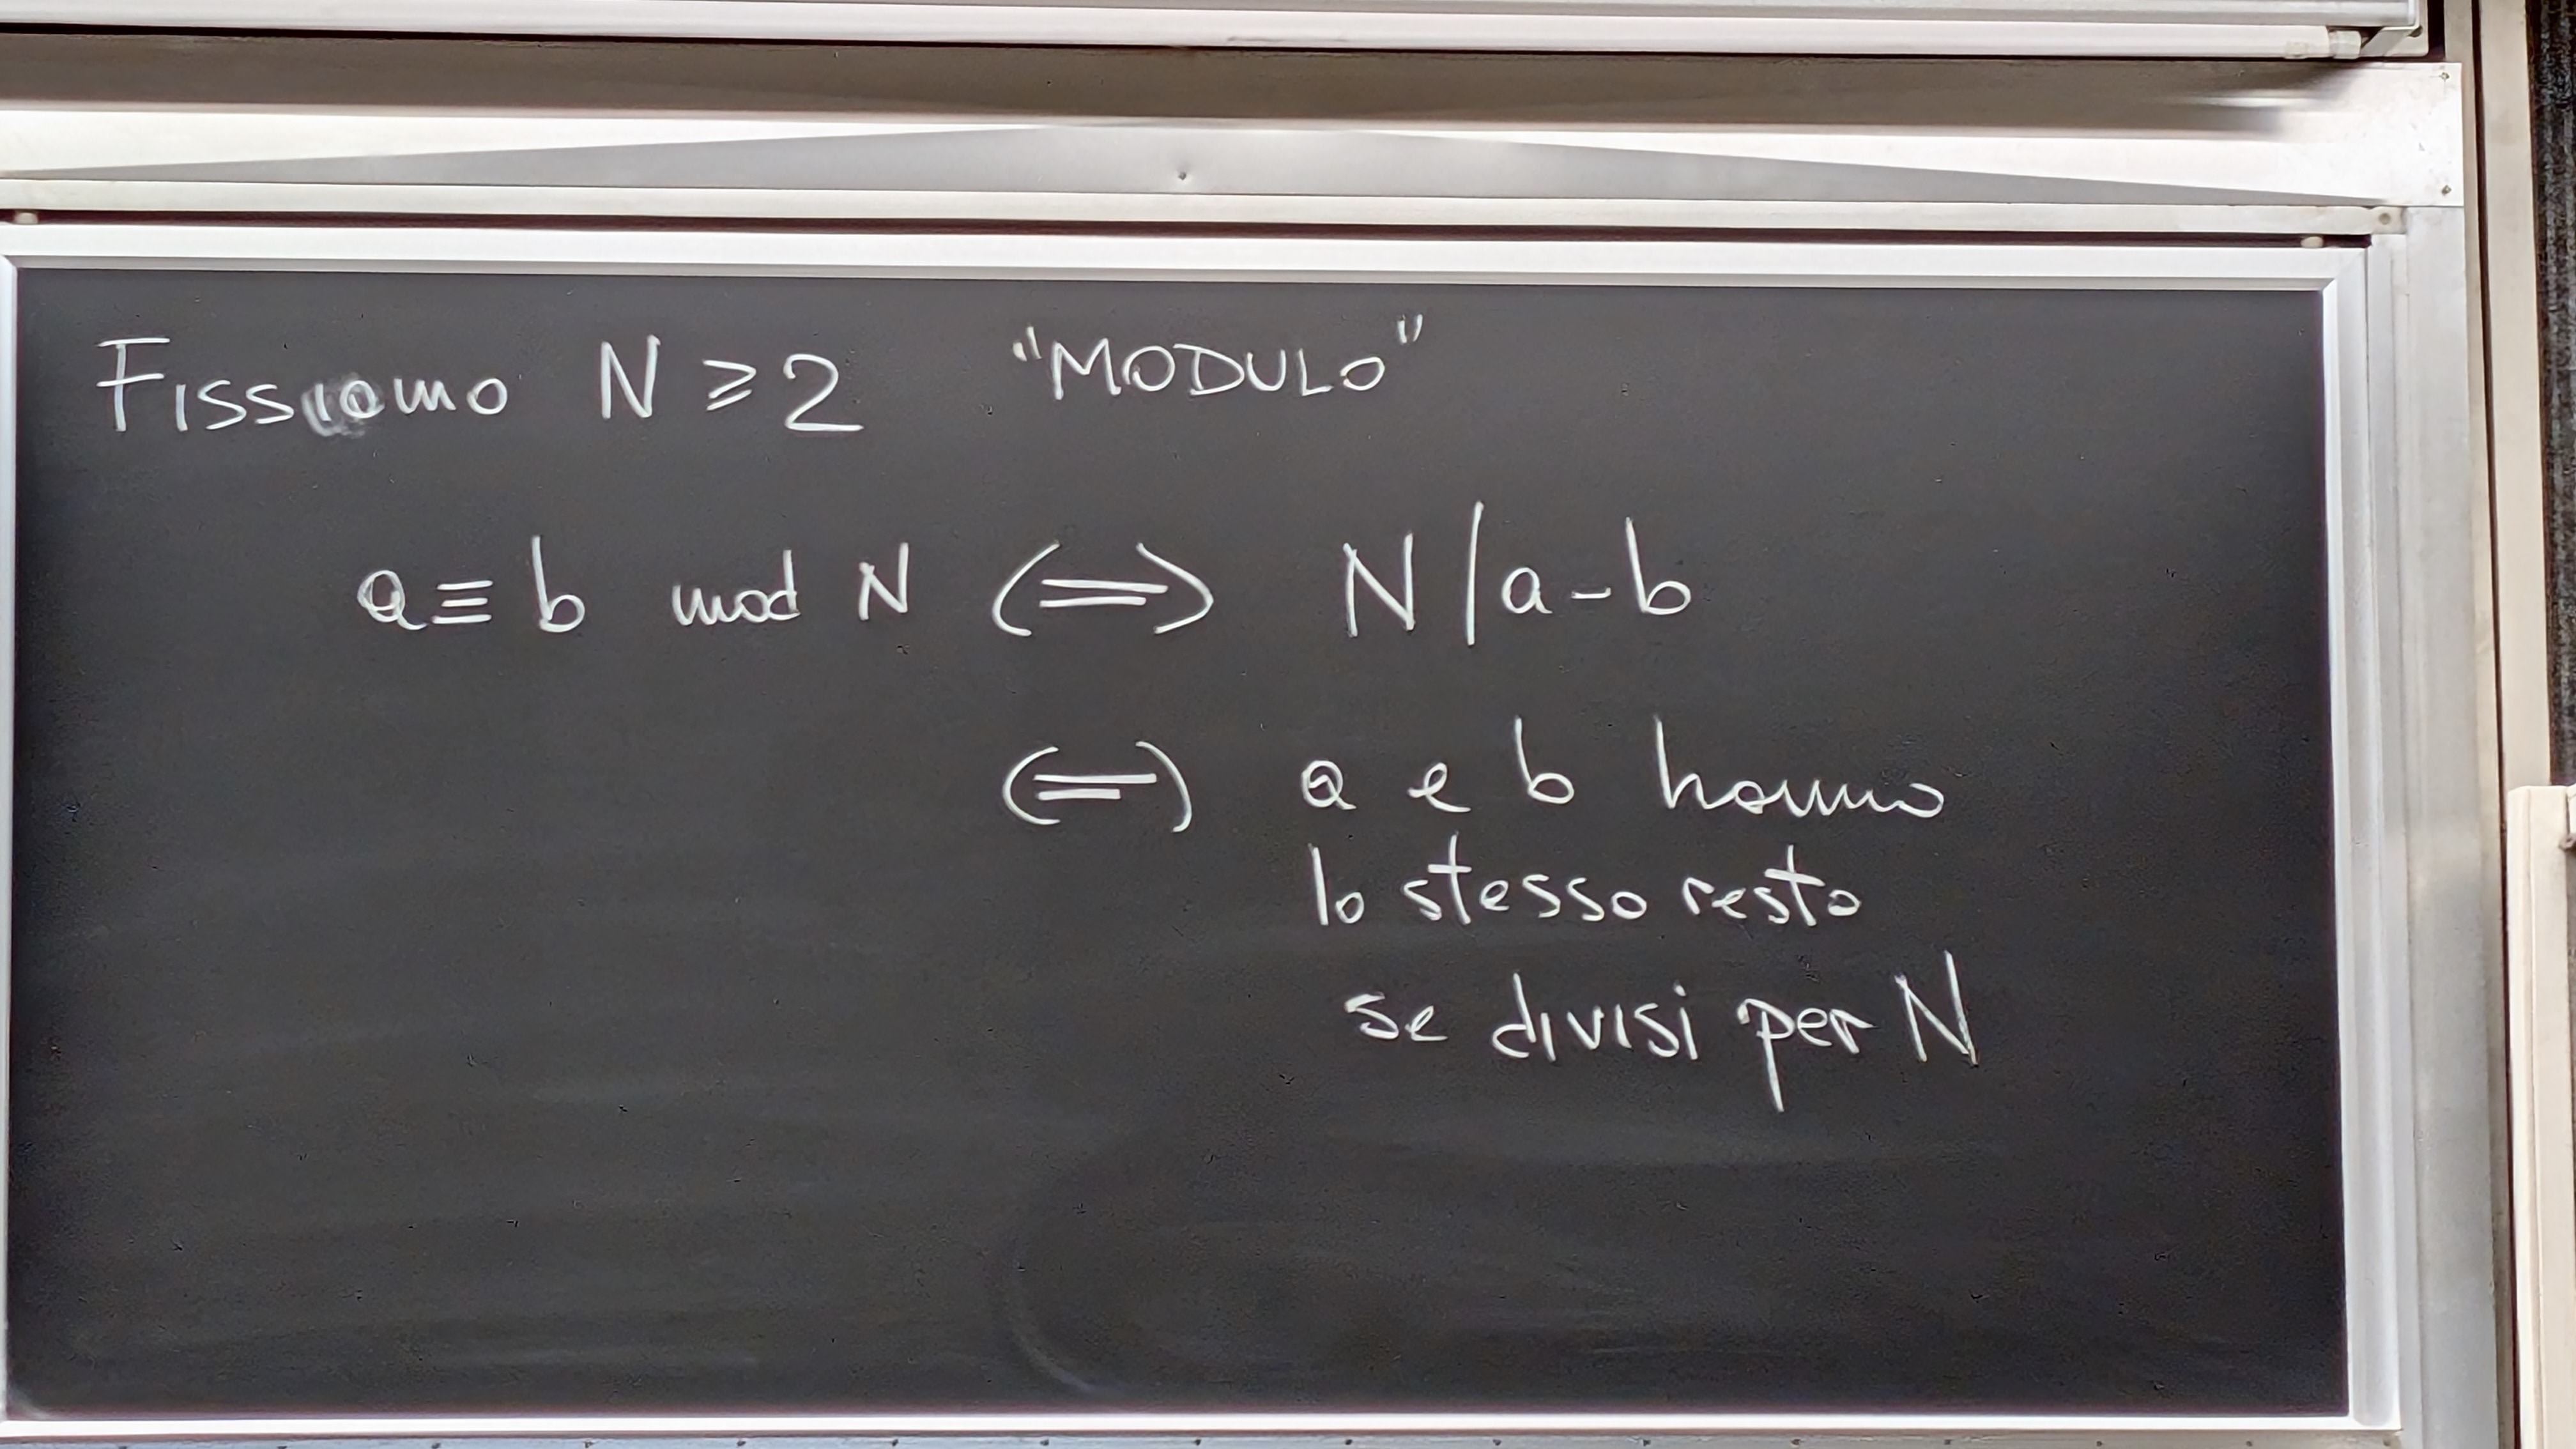 Fissiamo N ⩾ 2 "MODULO"
a ≡ b mod N ⟺ N | a - b
⟺ a e b hanno
lo stesso resto
se divisi per N